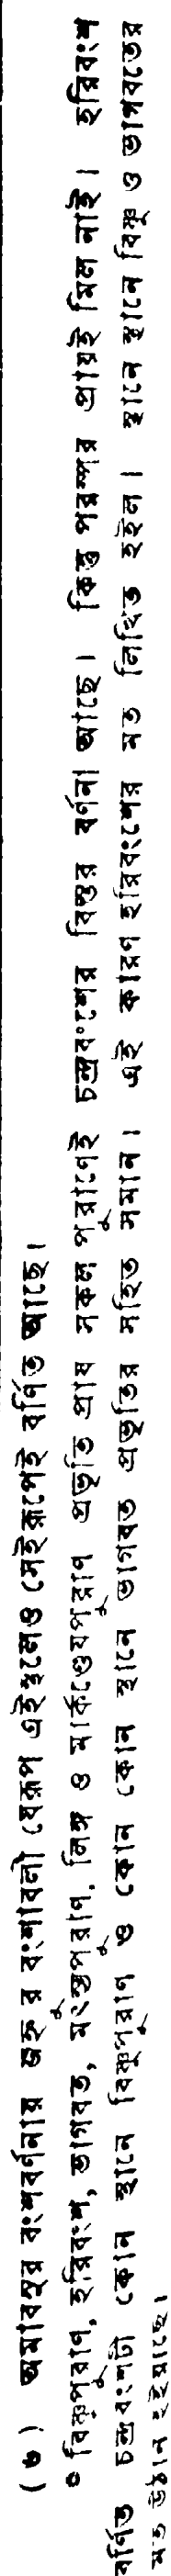 (৬) অমাবসুর বংশবর্ণনায় জহ্নুর বংশাবলী যেরূপ এইস্থলেও সেইরূপেই বর্ণিত আছে।
* বিষ্ণুপুরাণ, হরিবংশ, ভাগবত, মৎস্যপুরাণ, লিঙ্গ ও মার্কণ্ডেয়পুরাণ প্রভৃতি প্রায় সকল পুরাণেই চন্দ্রবংশের বিস্তর বর্ণনা আছে। কিন্তু পরস্পর প্রায়ই মিল নাই। হরিবংশ
বর্ণিত চন্দ্রবংশটী কোন স্থানে বিষ্ণুপুরাণ ও কোন কোন স্থানে ভাগবত প্রভৃতির সহিত সমান। এই কারণ হরিবংশের মত লিখিত হইল। স্থানে স্থানে বিষ্ণু ও ভাগবতের
মত উঠান হইয়াছে।